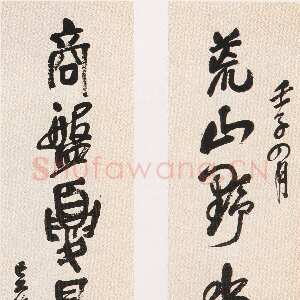 壬子四月
荒山野
商盤夏
Shufawang.CN